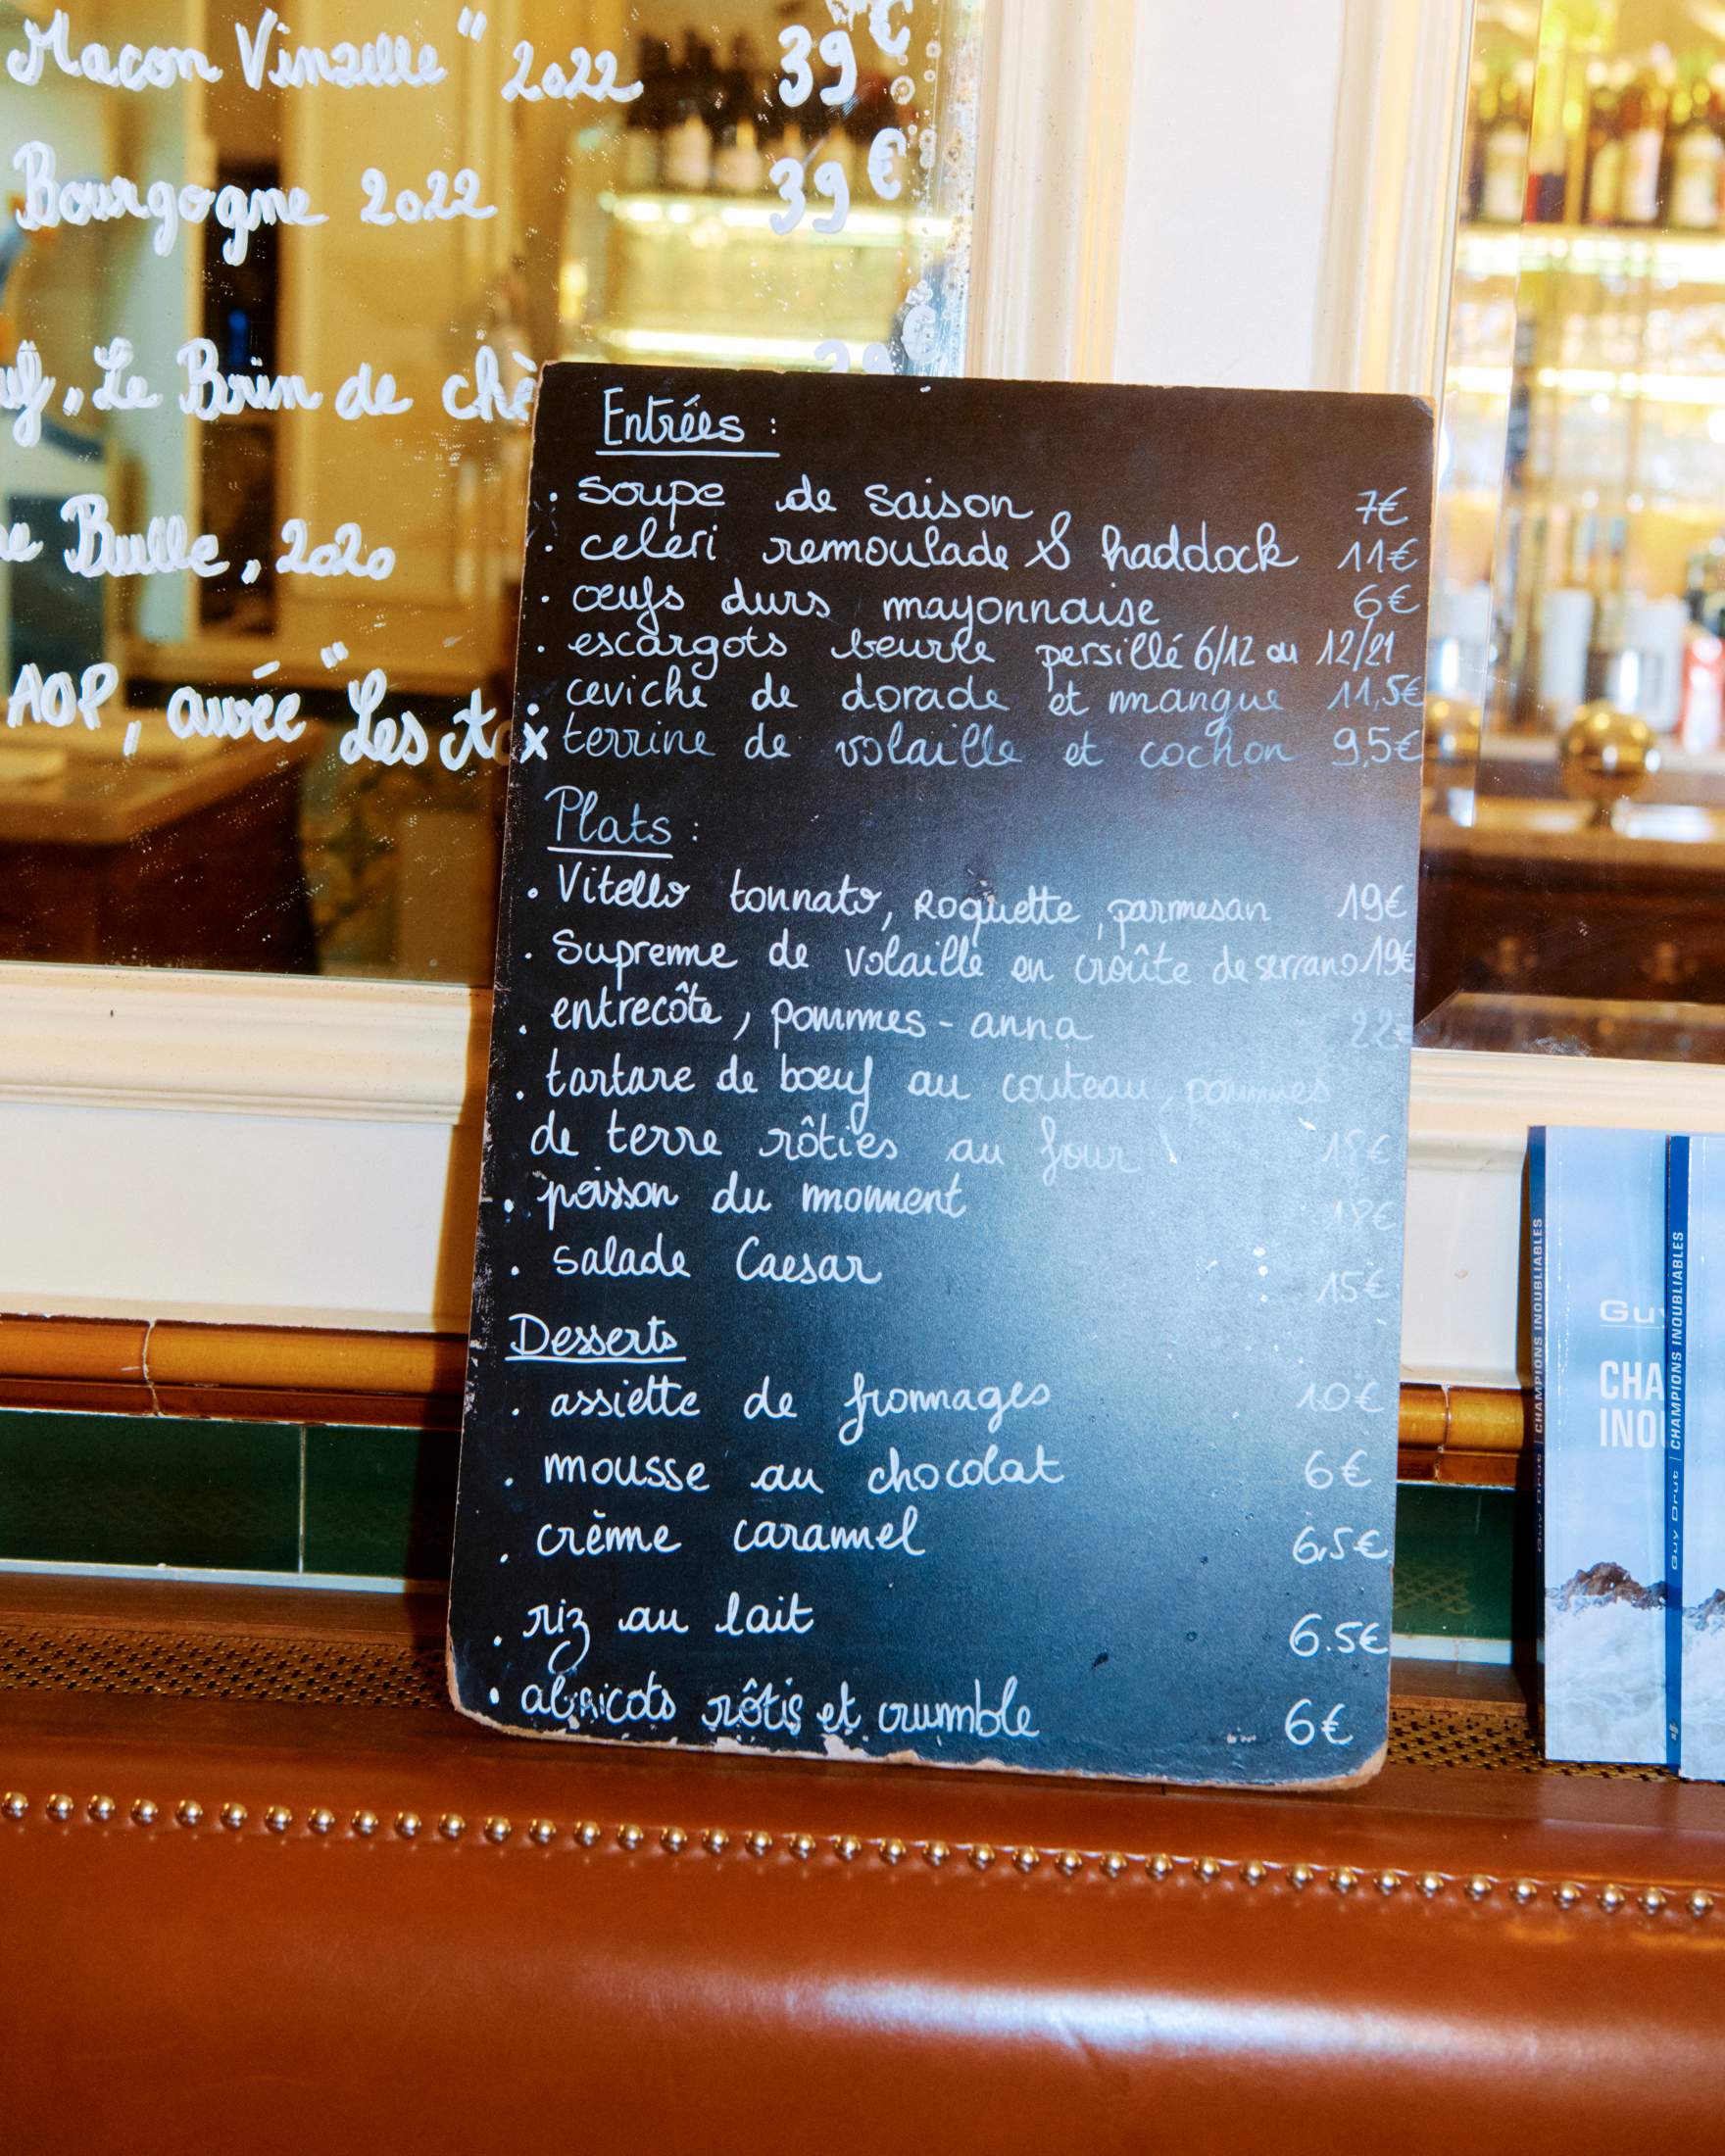 Macon Vinzelle" 2022 39€
Bourgogne 2022 39€
, Le Brin de chè
Bulle, 2020
AOP, cuvée "Les
Entrées :
. soupe de saison 7€
. celeri remoulade & haddock 11€
. œufs durs mayonnaise 6€
. escargots beurre persillé 6/12 ou 12/21
. ceviche de dorade et mangue 11,5€
x terrine de volaille et cochon 9,5€
Plats :
. Vitello tonnato, Roquette, parmesan 19€
. Supreme de volaille en croûte de serrano 19€
. entrecôte, pommes-anna 22€
. tartare de bœuf au couteau, pommes
de terre rôties au four
. poisson du moment 18€
. salade Caesar 15€
Desserts
. assiette de fromages 10€
. mousse au chocolat 6€
. crème caramel 6,5€
. riz au lait 6.5€
. abricots rôtis et crumble 6€
Guy Drut | CHAMPIONS INOUBLIABLES
Guy
CHA
INOU
Guy Drut | CHAMPIONS INOUBLIABLES